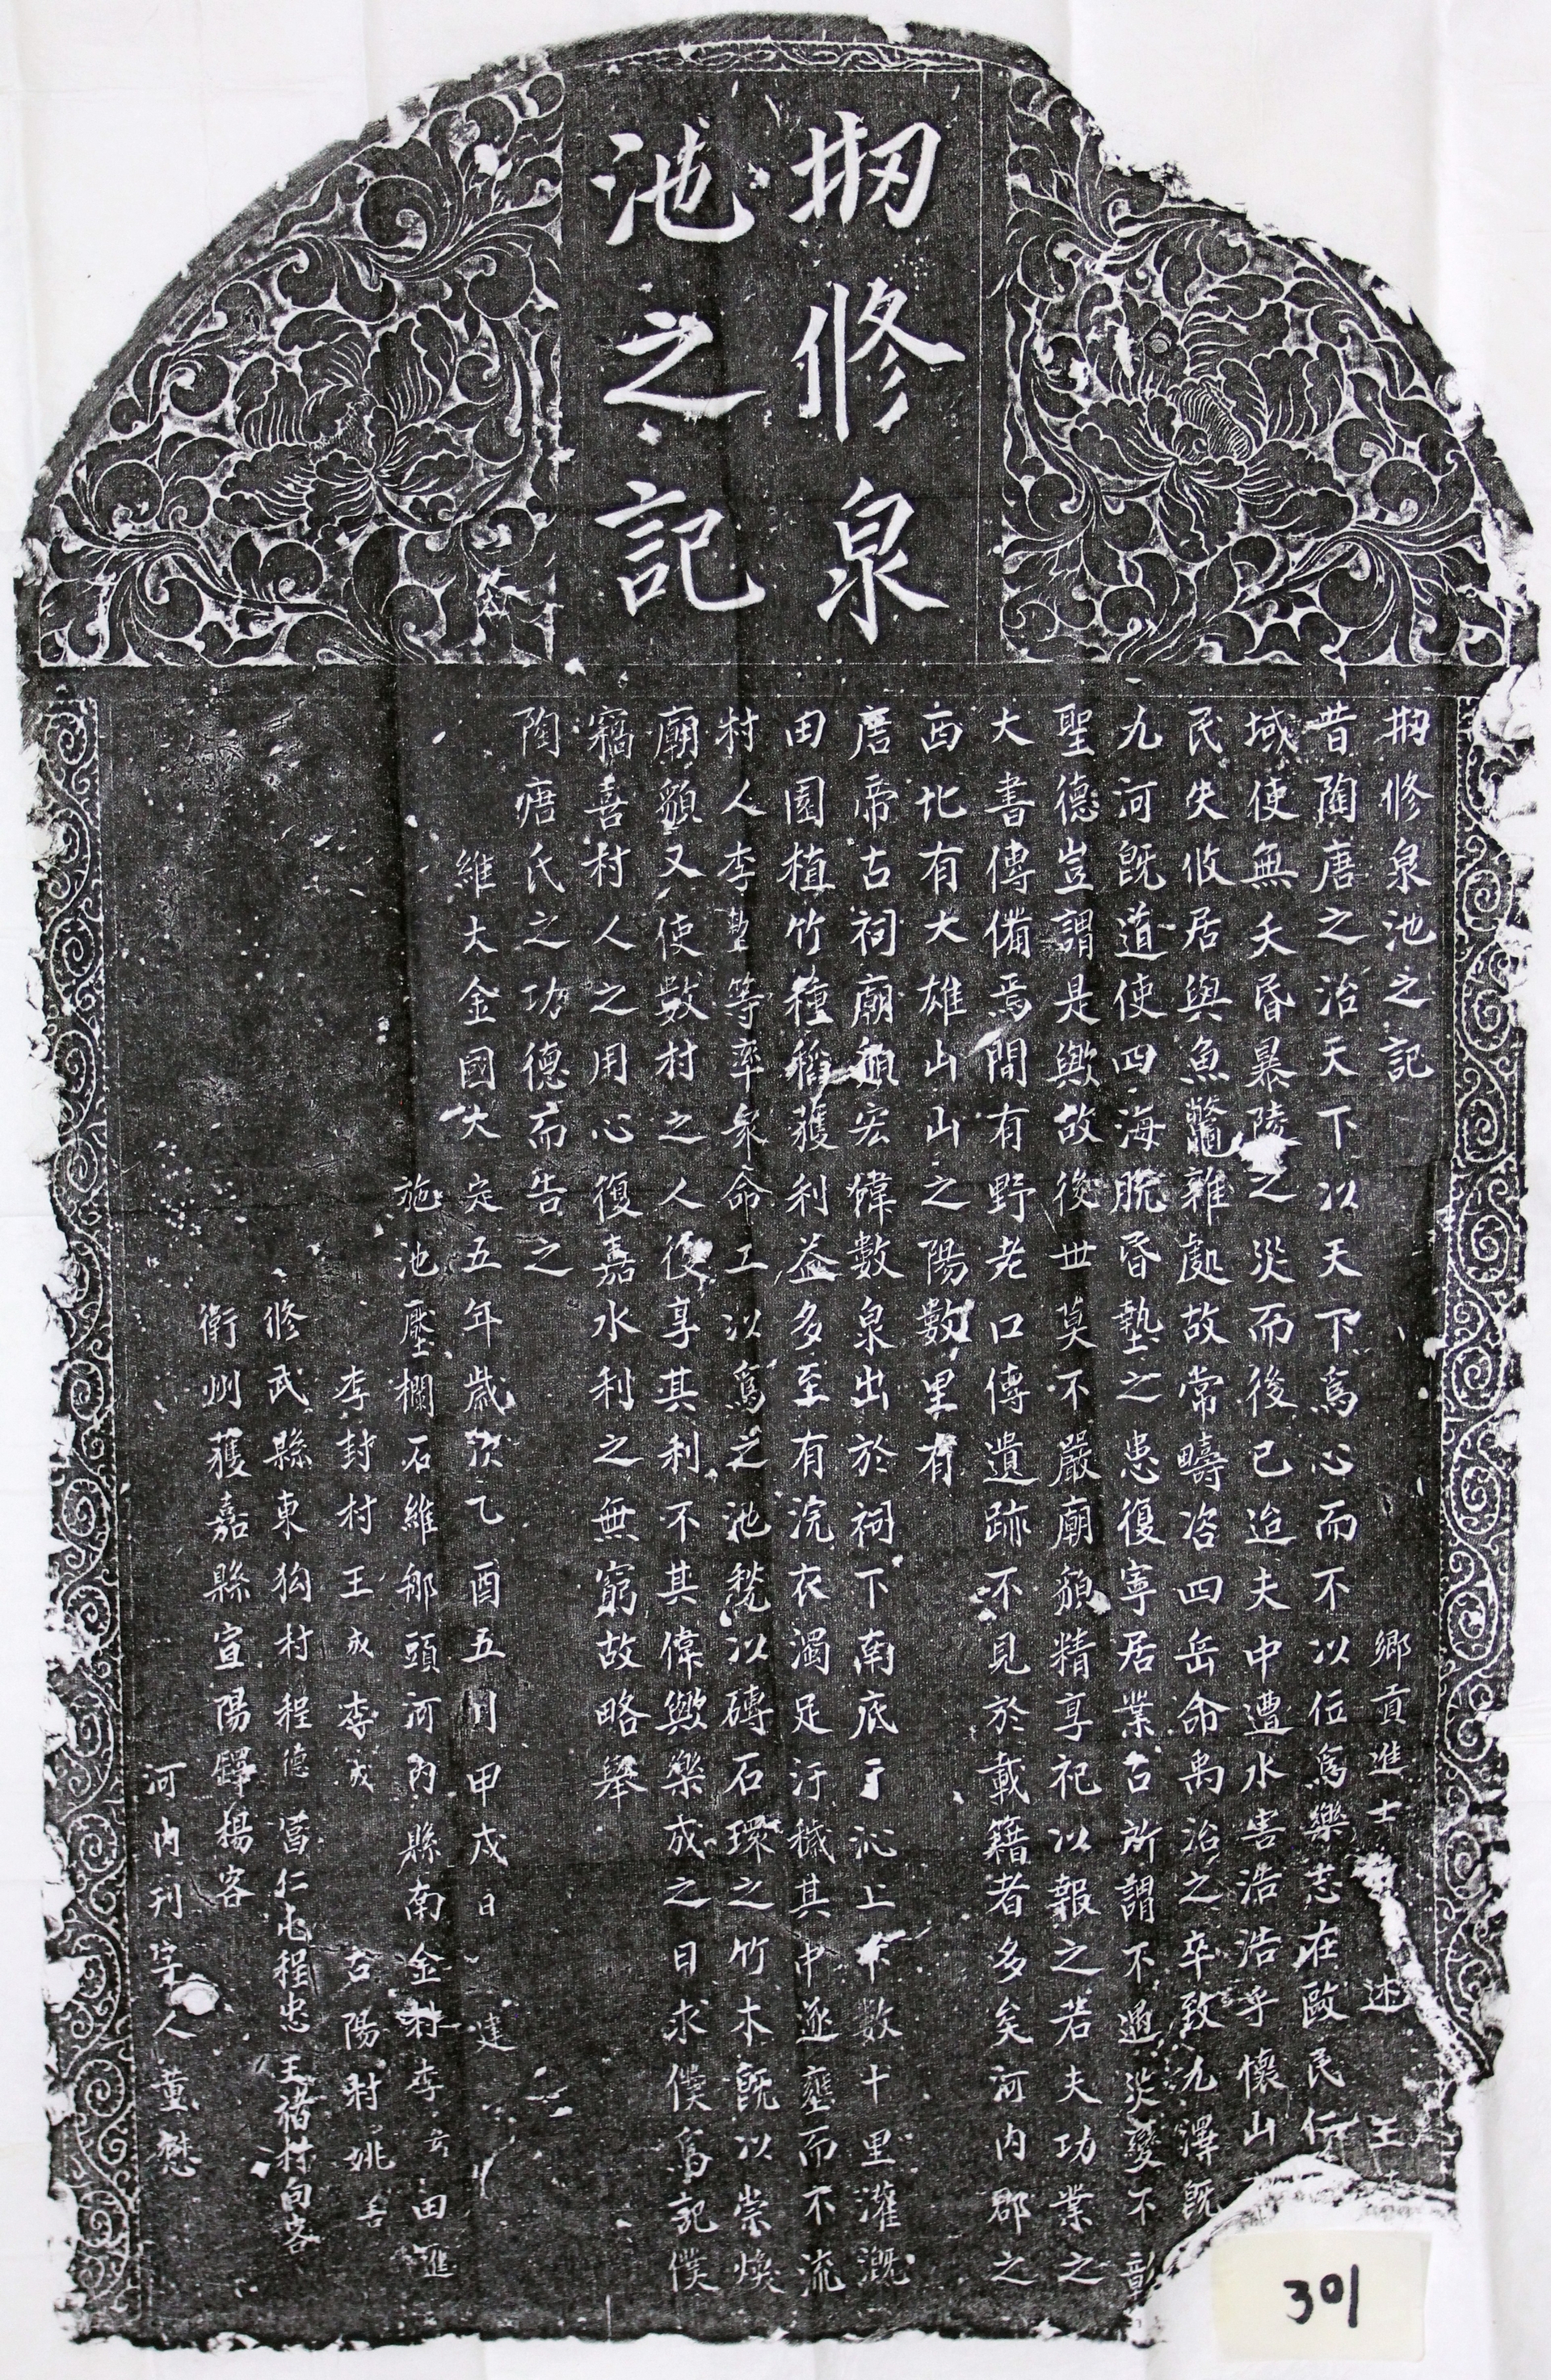 刱修泉
池之記
刱修泉池之記
鄉貢進士 述 王
昔陶唐之治天下以天下爲心而不以位爲樂志在歐民仁
域使無夭昏暴陵之災而後已迨夫中遭水害浩浩乎懷山
民失攸居與魚鼈雜處故常疇咨四岳命禹治之卒致九澤既
九河既道使四海脫昏墊之患復寧居業古所謂不遇災變不彰
聖德豈謂是歟故後世莫不嚴廟貌精享祀以報之若夫功業之
大書傳備焉間有野老口傳遺跡不見於載籍者多矣河內郡之
西北有大雄山山之陽數里有
唐帝古祠廟貌宏偉數泉出於祠下南底于沁上下數十里灌溉
田園植竹種稻獲利益多至有浣衣濁足汙穢其中遂壅而不流
村人李墊等率衆命工以爲之池甃以磚石環之竹木既以崇煥
廟貌又使數村之人復享其利不其偉歟樂成之日求僕爲記僕
竊喜村人之用心復嘉水利之無窮故略舉
陶唐氏之功德而告之
維大金國大定五年歲次乙酉五月甲戌日 建
施池壓欄石維那頭河內縣南金村李 田進
李封村王成 李成 古陽村姚
修武縣東狗村程德 富仁屯程忠 王褚村向容
衛州獲嘉縣宣陽驛楊容
河內刊字人董慰
301